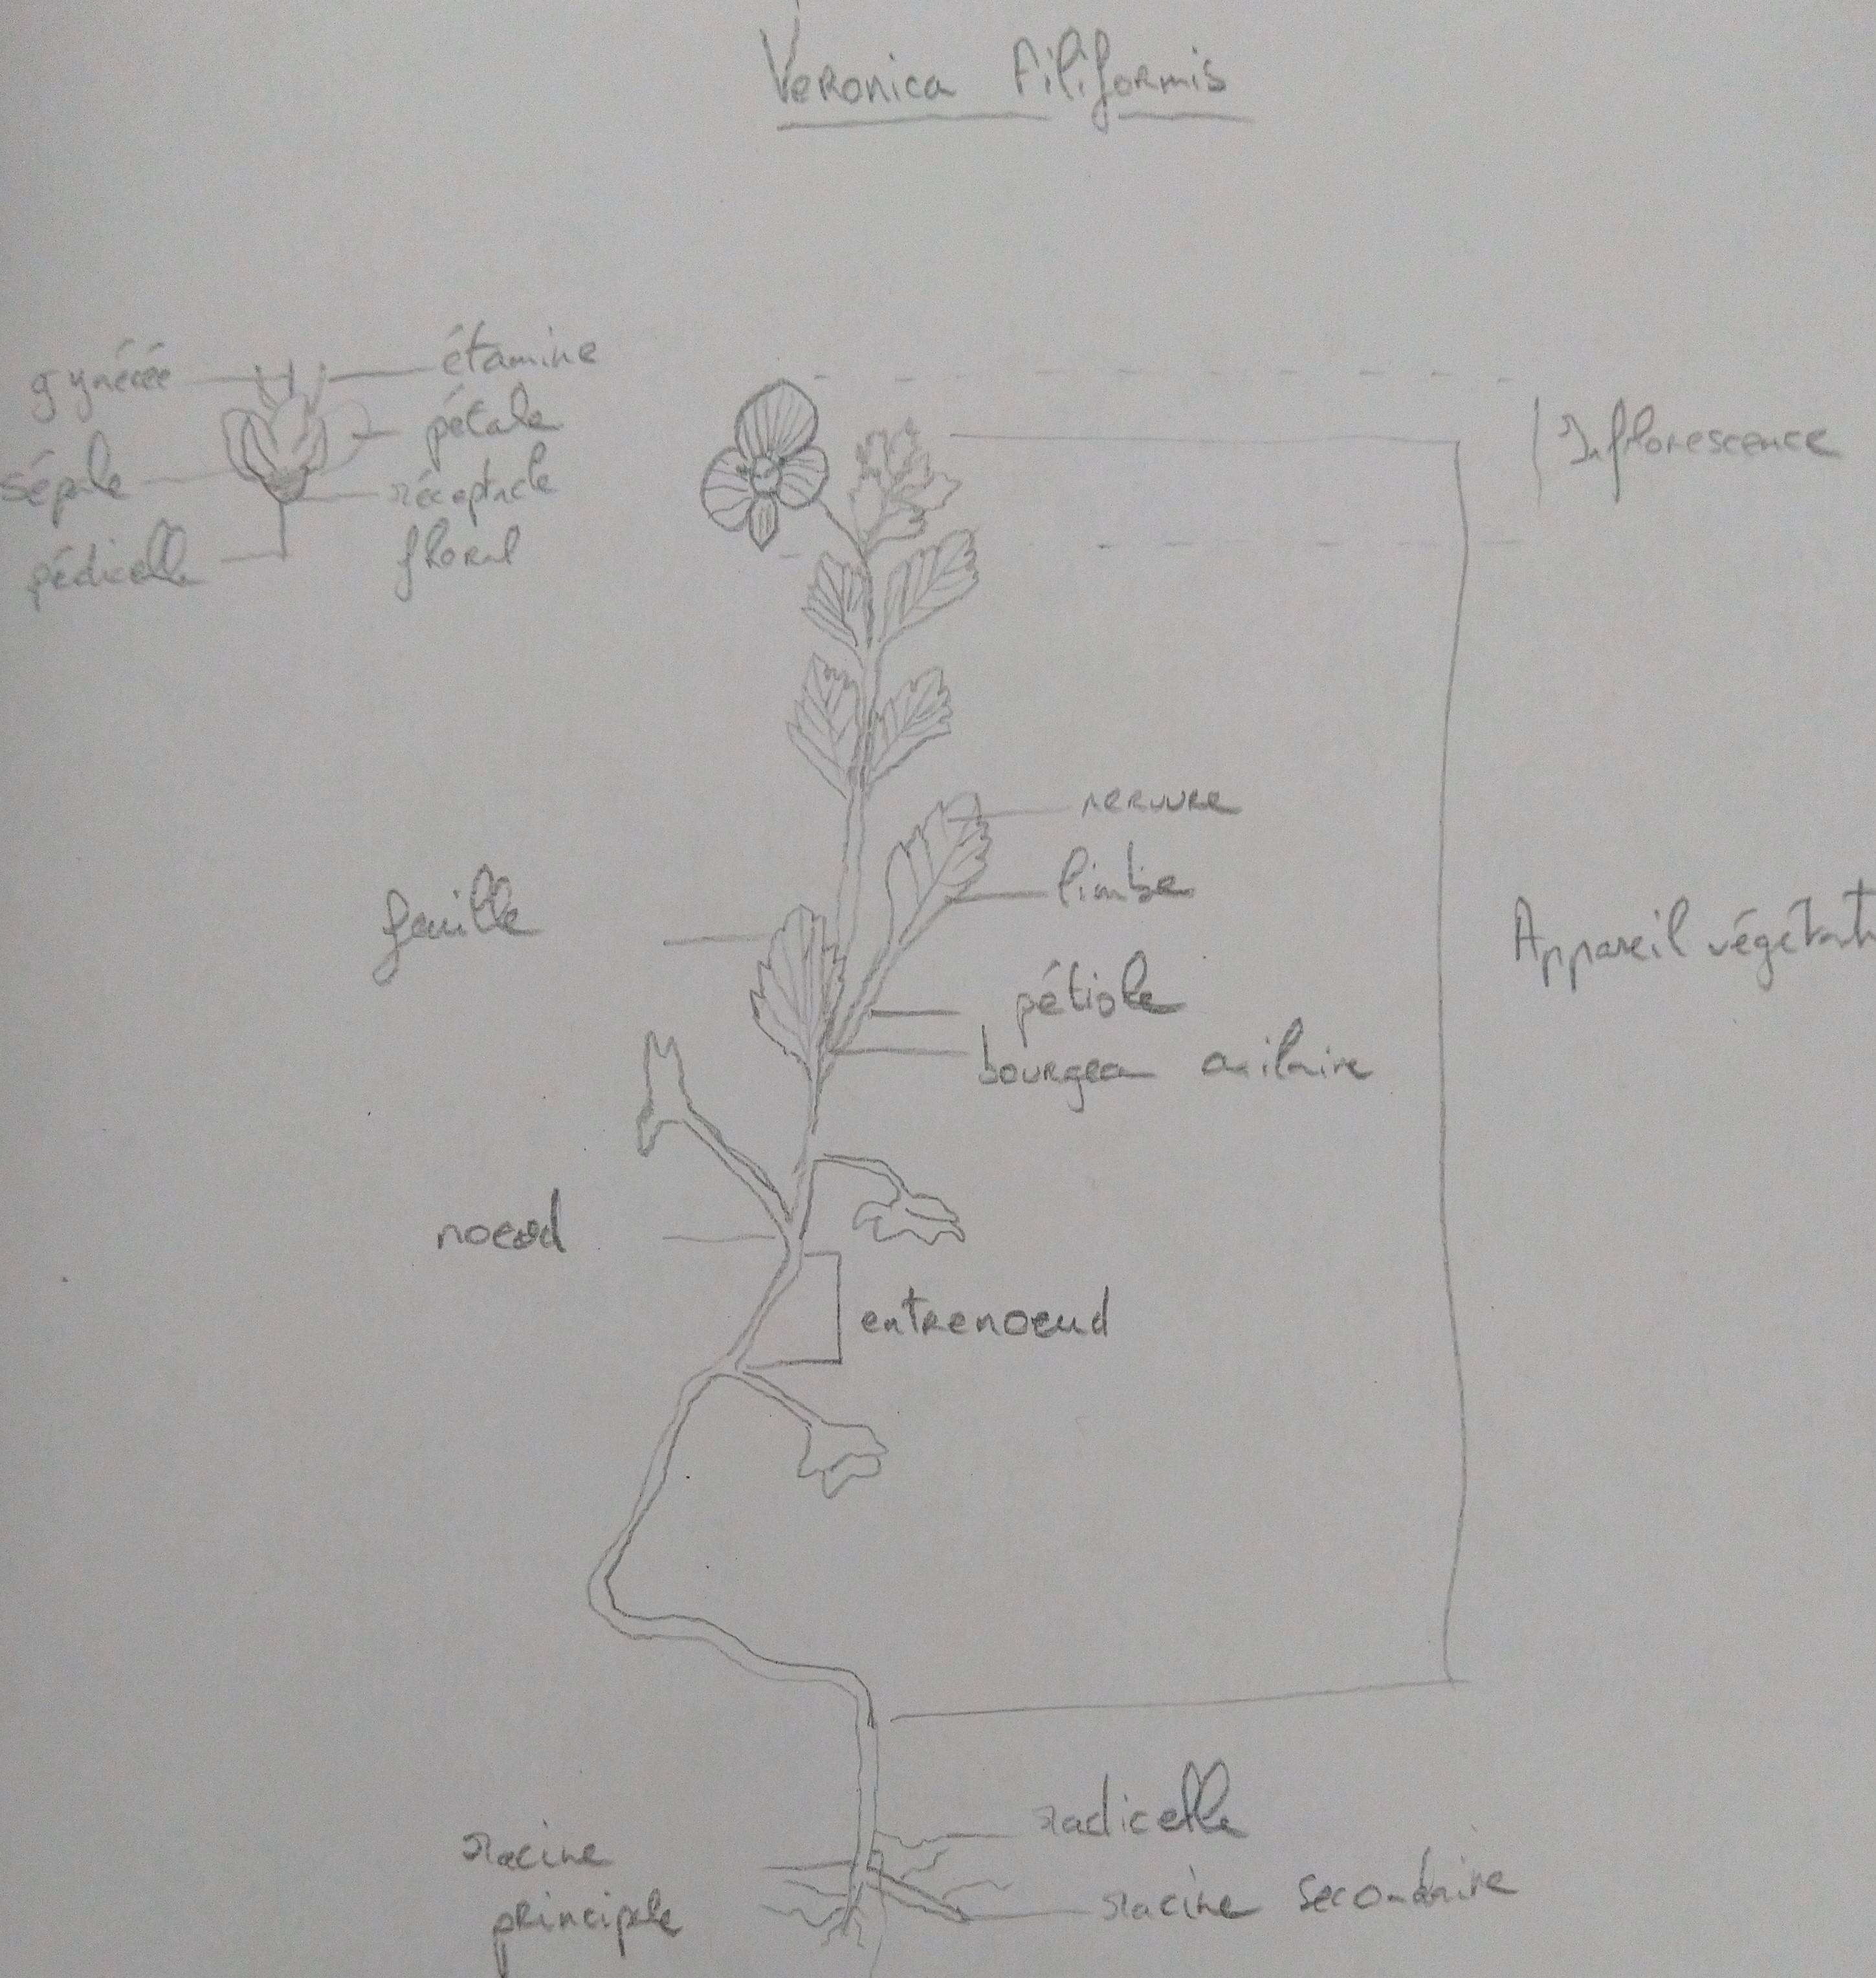 Veronica Filiformis
gynécée
étamine
pétale
sépale
réceptacle
floral
pédicelle
Inflorescence
nervure
limbe
feuille
Appareil végétatif
pétiole
bourgeon axilaire
noeud
entrenoeud
radicelle
racine
principale
racine secondaire